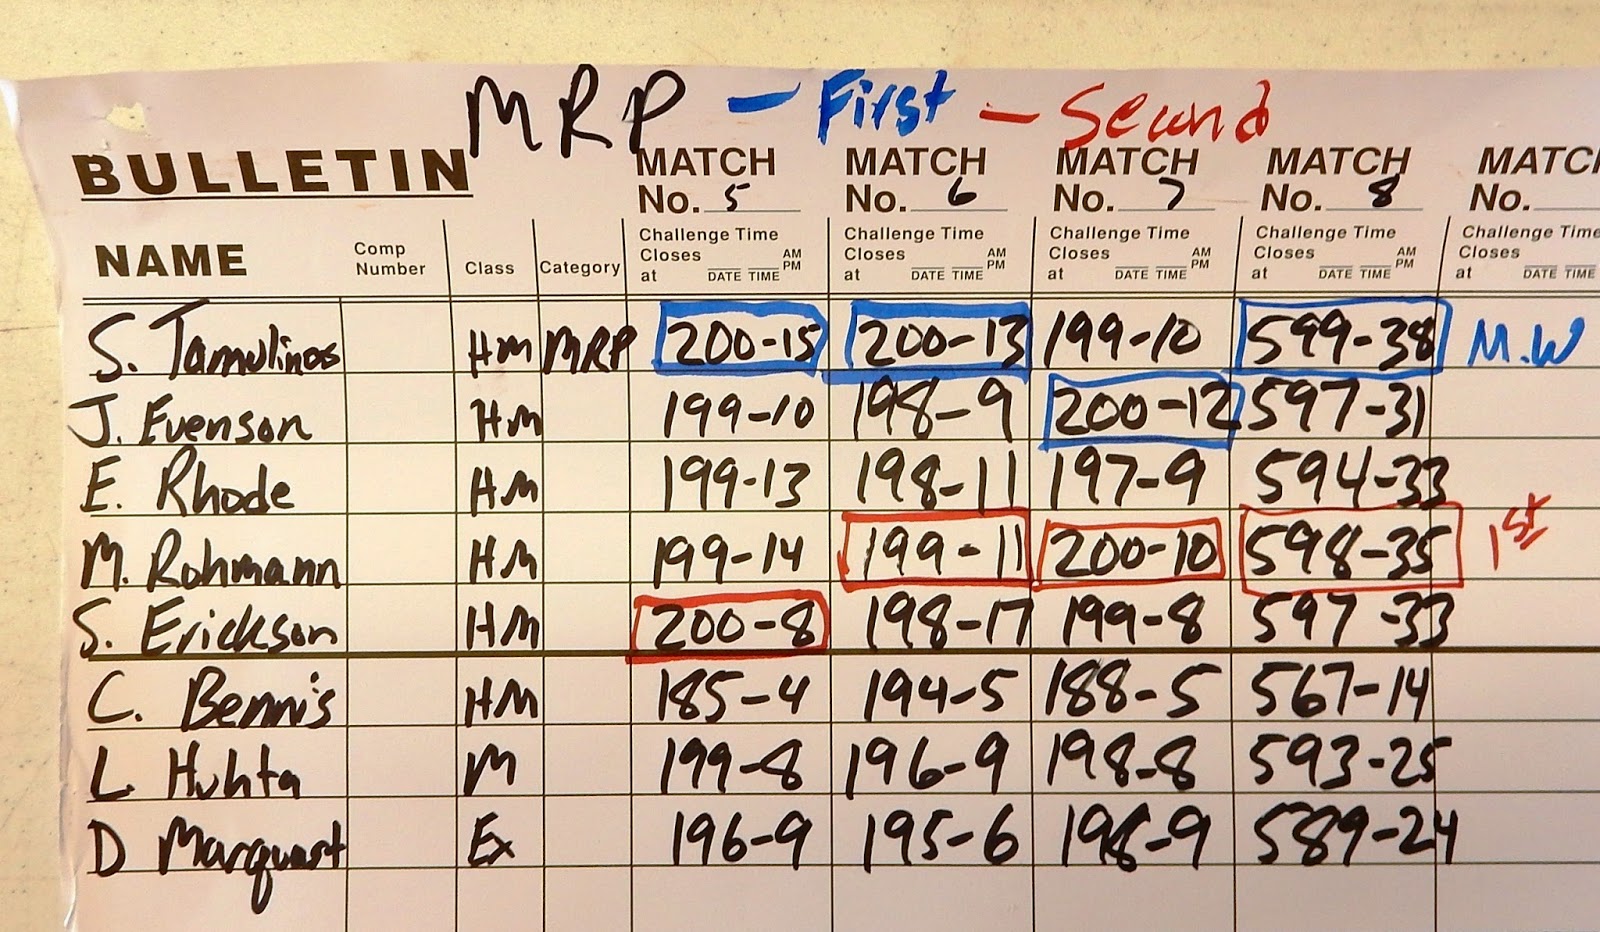 MRP - First - Second
BULLETIN MATCH No. 5 MATCH No. 6 MATCH No. 7 MATCH No. 8 MATCH No.
NAME Comp Number Class Category Challenge Time Closes at DATE TIME AM PM Challenge Time Closes at DATE TIME AM PM Challenge Time Closes at DATE TIME AM PM Challenge Time Closes at DATE TIME AM PM Challenge Time Closes at DATE TIME
S. Tamulinas HM MRP 200-15 200-13 199-10 599-38 M.W
J. Evenson HM 199-10 198-9 200-12 597-31
E. Rhode HM 199-13 198-11 197-9 594-33
M. Rohmann HM 199-14 199-11 200-10 598-35 1st
S. Erickson HM 200-8 198-17 199-8 597-33
C. Bennis HM 185-4 194-5 188-5 567-14
L. Huhta M 199-8 196-9 198-8 593-25
D Marquart Ex 196-9 195-6 198-9 589-24